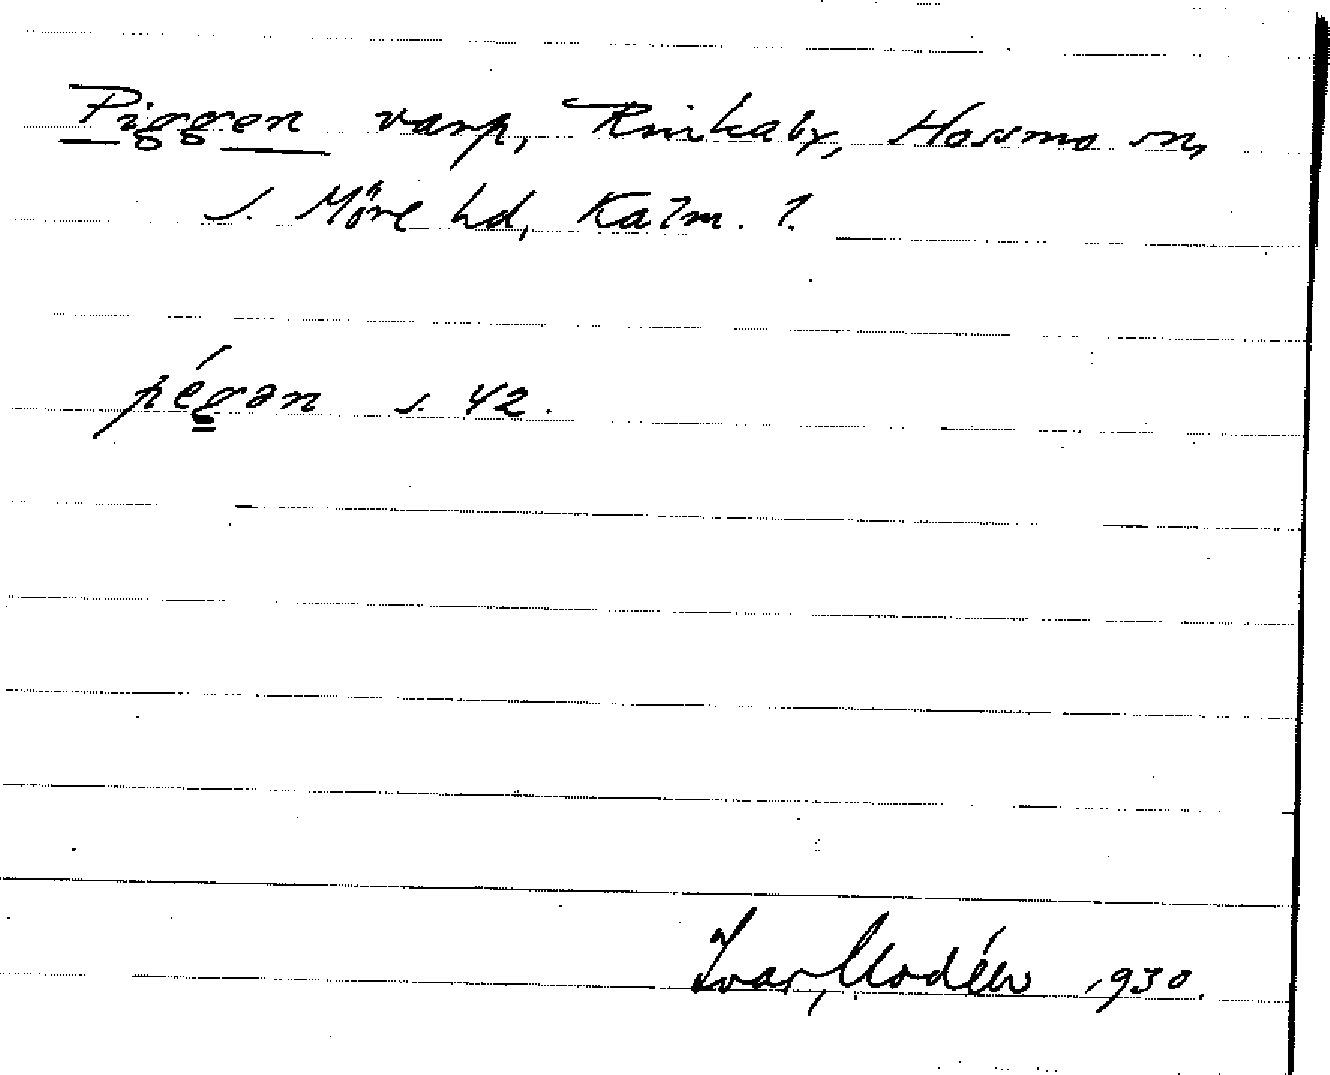 Piggen varp, Rinkaby, Hossmo sn,
s. Möre hd, Kalm. l.
pégən s. 42.
Ivar Modéer 1930.